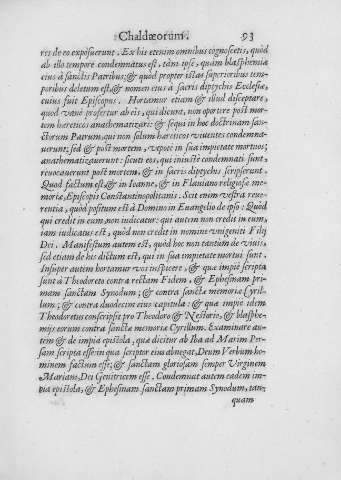 Chaldæorum. 93
res de eo exposuerunt. Ex his etenim omnibus cognoscetis, quòd
ab illo tempore condemnatus est, tàm ipse, quàm blasphemia
eius à sanctis Patribus; & quòd propter istas superioribus tem-
poribus deletum est, & nomen eius à sacris diptychis Ecclesiæ,
cuius fuit Episcopus. Hortamur etiam & illud disceptare,
quod vanè profertur ab eis, qui dicunt, non oportere post mor-
tem hæreticos anathematizari: & sequi in hoc doctrinam san-
ctorum Patrum, qui non solùm hæreticos viuentes condemna-
uerunt; sed & post mortem, vtpote in sua impietate mortuos;
anathematizauerunt: sicuti eos, qui iniustè condemnati sunt,
reuocauerunt post mortem, & in sacris diptychis scripserunt.
Quod factum est, & in Ioanne, & in Flauiano religiosæ me-
moriæ, Episcopis Constantinopolitanis. Scit enim vestra reue-
rentia, quòd positum est à Domino in Euangelio de ipso: Quòd
qui credit in eum, non iudicatur: qui autem non credit in eum,
iam iudicatus est, quòd non credit in nomine vnigeniti Filij
Dei. Manifestum autem est, quòd hoc non tantùm de viuis,
sed etiam de his dictum est, qui in sua impietate mortui sunt.
Insuper autem hortamur vos inspicere, & quæ impiè scripta
sunt à Theodoreto contra rectam Fidem, & Ephesinam pri-
mam sanctam Synodum; & contra sanctæ memoriæ Cyril-
lum; & contra duodecim eius capitula: & quæ impiè idem
Theodoretus conscripsit pro Theodoro & Nestorio, & blasphe-
mijs eorum contra sanctæ memoriæ Cyrillum. Examinare au-
tem & de impia epistola, quæ dicitur ab Iba ad Marim Per-
sam scripta esse: in qua scriptor eius abnegat, Deum Verbum ho-
minem factum esse; & sanctam gloriosam semper Virginem
Mariam, Dei Genitricem esse. Condemnat autem eadem im-
pia epistola, & Ephesinam sanctam primam Synodum, tan-
quam